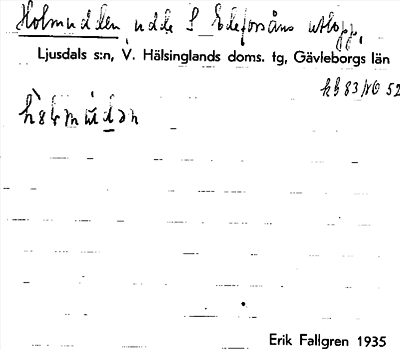 Holmudden udde S Edeforsåns utlopp,
Ljusdals s:n, V. Hälsinglands doms. tg, Gävleborgs län
kb 83 NO 52
Erik Fallgren 1935